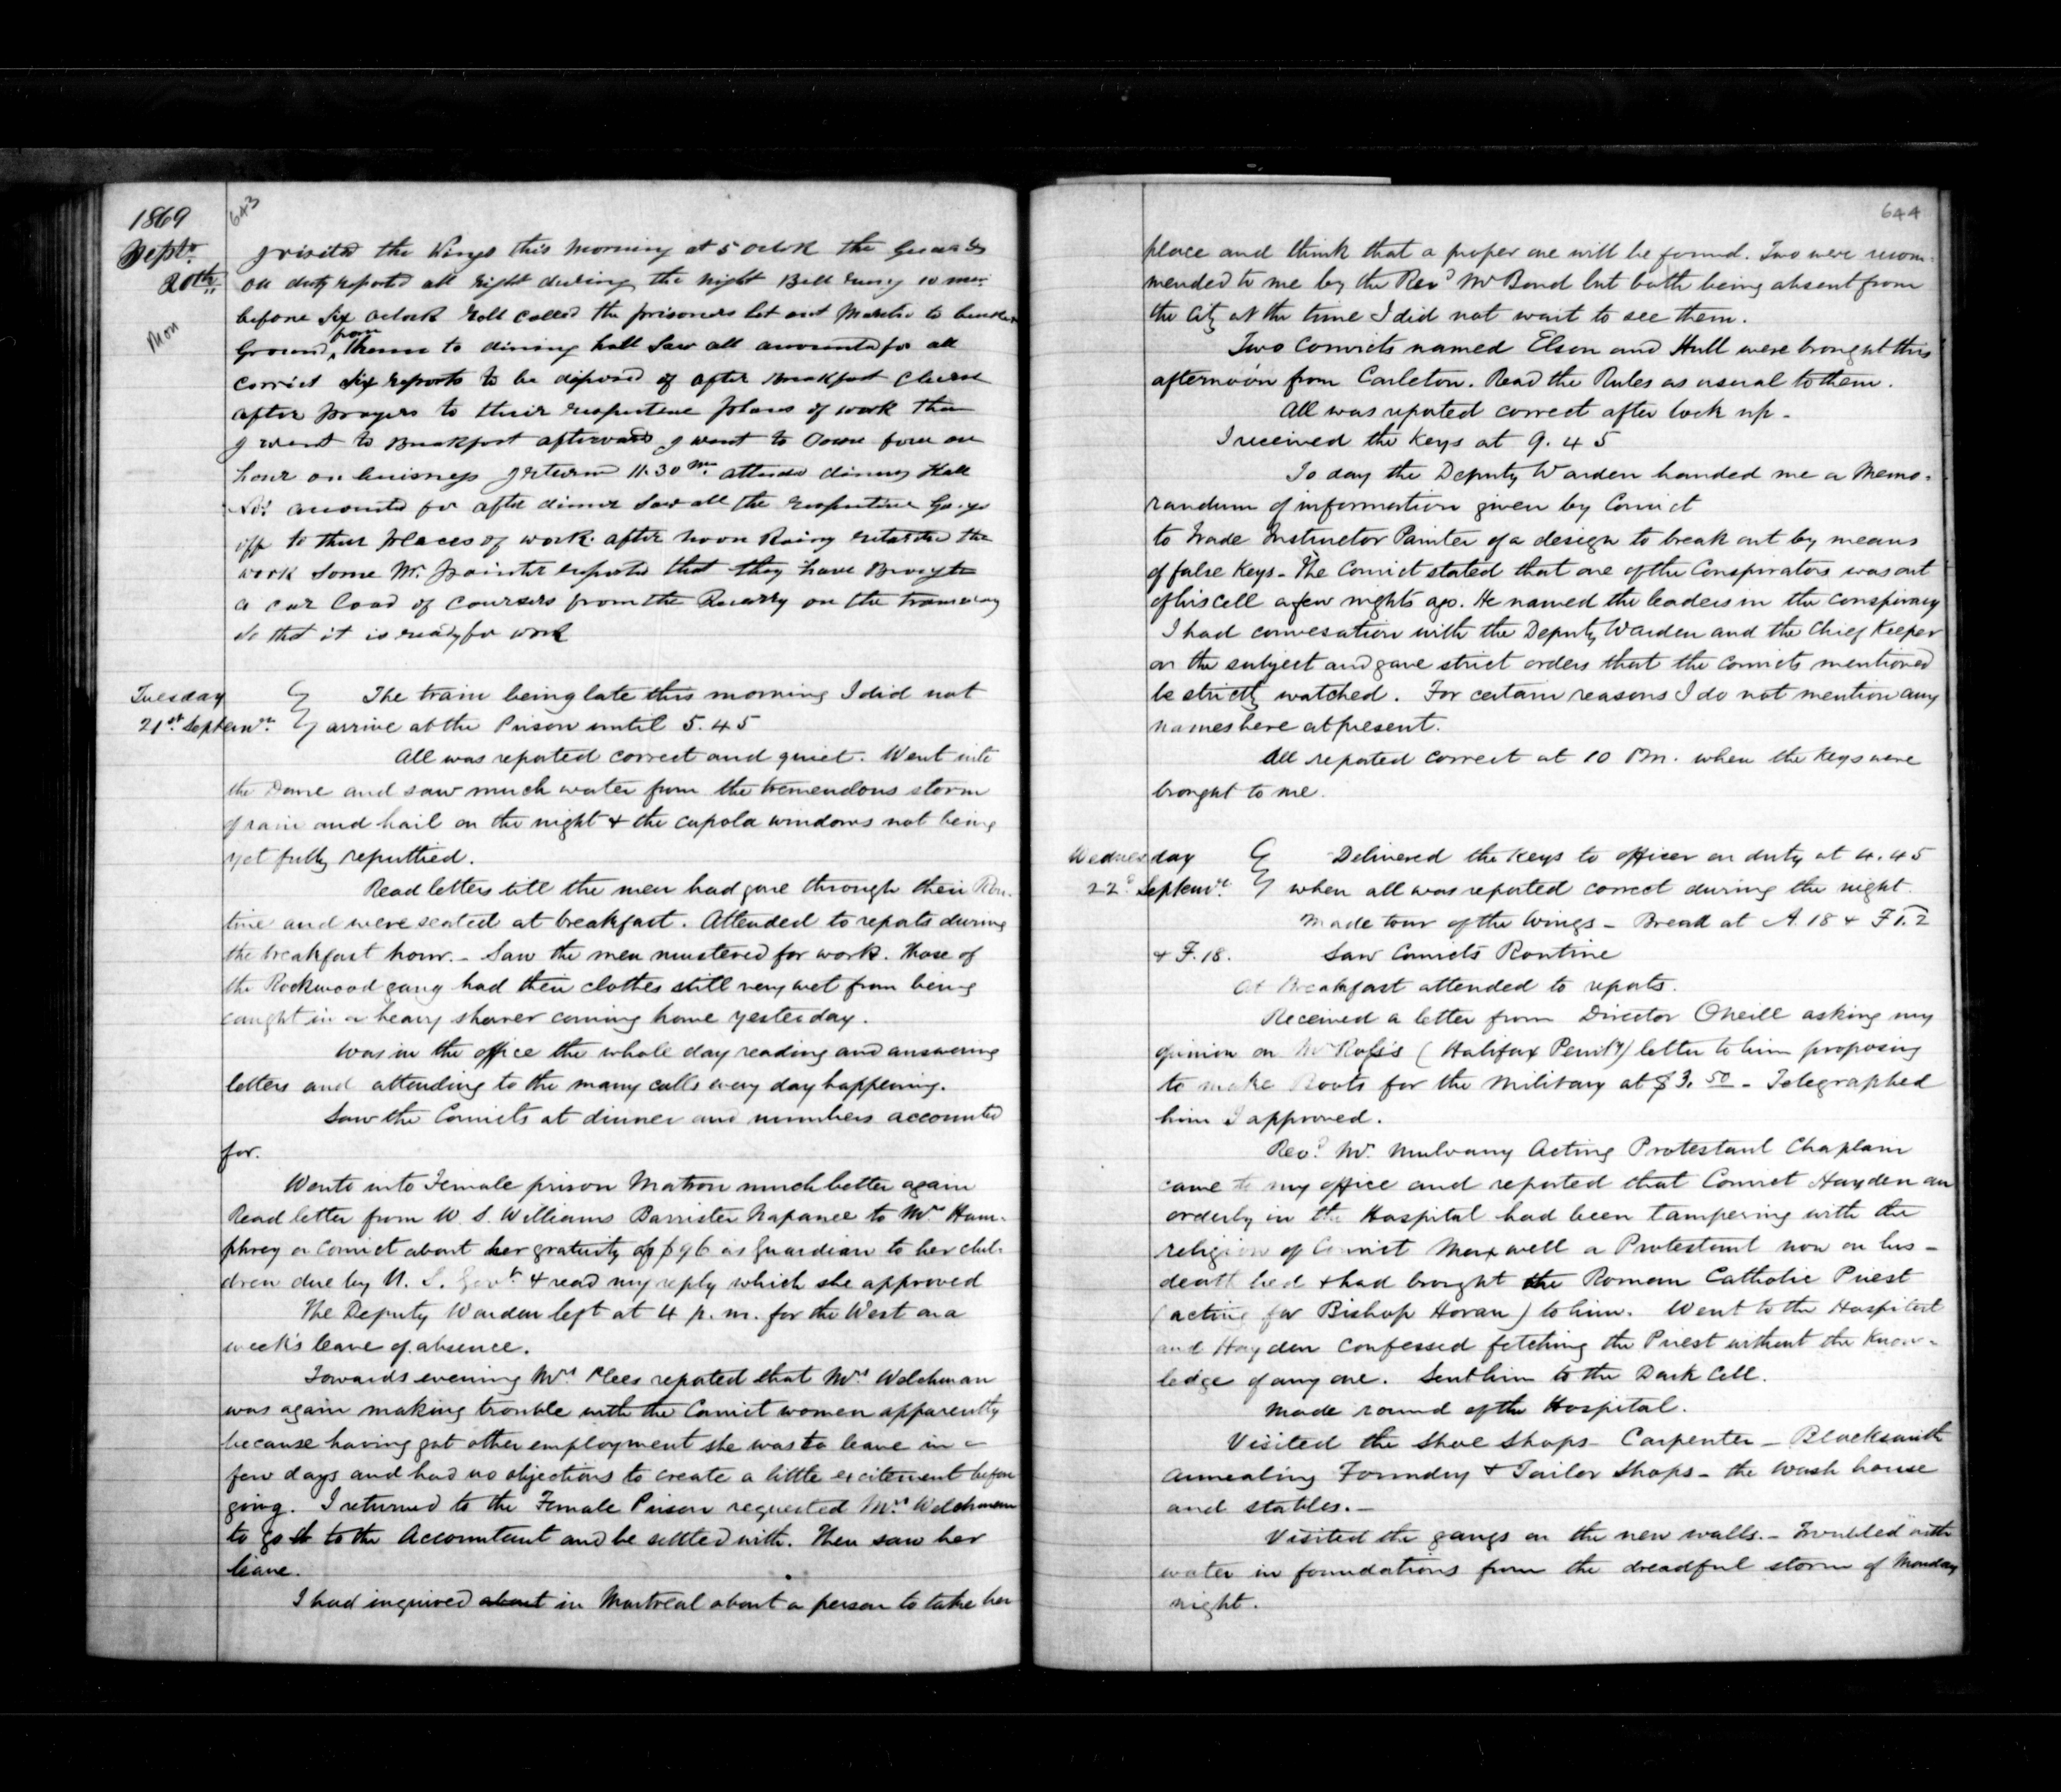 643
1869
Septr
20th
Mon
I visited the Wings this Morning at 5 oclok the Guards
on duty reported all right during the night Bell rung 10 min
before Six oclock Roll called the prisoners let out Marched to
Ground, from thence to dining hall Saw all accounted for all
correct Six reports to be disposed of after Breakfast
after prayers to their respective places of work then
I went to Breakfast afterwards I went to Town for an
hour on buisness I return 11.30 attended dinning Hall
accounted for after dinner Saw all the respective Gangs
off to their places of work. after noon Rainy retarded the
work Some Mr. Painter reported that they have Brought
a car load of coursers from the Quarry on the tramway
So that it is ready for work
Tuesday
21st Septemr.
The train being late this morning I did not
arrive at the Prison until 5.45
All was reported correct and quiet. Went into
the Dome and saw much water from the tremendous storm
of rain and hail on the night & the cupola windows not being
yet fully reputtied.
Read letters till the men had gone through their Rou-
tine and were seated at breakfast. Attended to reports during
the breakfast hour. - Saw the men mustered for work. Those of
the Rockwood gang had their clothes still very wet from being
caught in a heavy shower coming home yesterday.
Was in the office the whole day reading and answering
letters and attending to the many calls every day happening.
Saw the Convicts at dinner and numbers accounted
for.
Wente into Female prison Matron much better again
Read letter from W. S. Williams Barrister Napanee to Mrs Hum-
phrey a convict about her gratuity of $96 as Guardian to her chil-
dren due by U. S. Govt. & read my reply which she approved
The Deputy Warden left at 4 p.m. for the West on a
week's leave of absence.
Towards evening Mrs Plees reported that Mrs Welchman
was again making trouble with the Convict women apparently
because having got other employment she was to leave in a
few days and had no objections to create a little excitement before
going. I returned to the Female Prison requested Mrs Welchman
to go to the Accountant and be settled with. Then saw her
leave.
I had inquired about in Montreal about a person to take her
644
place and think that a proper one will be found. Two were recom-
mended to me by the Revd Mr Bond but both being absent from
the City at the time I did not wait to see them.
Two Convicts named Elson and Hull were brought this
afternoon from Carleton. Read the Rules as usual to them.
All was reported correct after lock up -
I received the Keys at 9.45
To day the Deputy Warden handed me a Memo-
randum of information given by Convict
to Trade Instructor Painter of a design to break out by means
of false Keys - The Convict stated that one of the Conspirators was out
of his cell a few nights ago. He named the leaders in the conspiracy
I had conversation with the Deputy Warden and the Chief Keeper
on the subject and gave strict orders that the Convicts mentioned
be strictly watched. For certain reasons I do not mention any
names here at present.
All reported correct at 10 P.m. when the Keys were
brought to me.
Wednesday
22d Septemr.
Delivered the Keys to officer on duty at 4.45
when all was reported correct during the night.
Made tour of the Wings - Bread at A.18 & F 1.2
& F.18. Saw Convicts Routine
At Breakfast attended to reports.
Received a letter from Director Oneill asking my
opinion on Mr Ross's (Halifax Penity) letter to him proposing
to make Boots for the Military at $3.50 - Telegraphed
him I approved.
Revd. Mr. Mulvany Acting Protestant Chaplain
came to my office and reported that Convict Hayden an
orderly in the Hospital had been tampering with the
religion of Convict Maxwell a Protestant now on his -
death bed & had brought the Roman Catholic Priest
(acting for Bishop Horan) to him. Went to the Hospital
and Hayden confessed fetching the Priest without the know-
ledge of any one. Sent him to the Dark Cell.
Made round of the Hospital.
Visited the Shoe Shops - Carpenter - Blacksmith
Annealing Foundry & Tailor Shops - the Wash house
and stables. -
Visited the gangs on the new walls. - Troubled with
water in foundations from the dreadful storm of Monday
night.